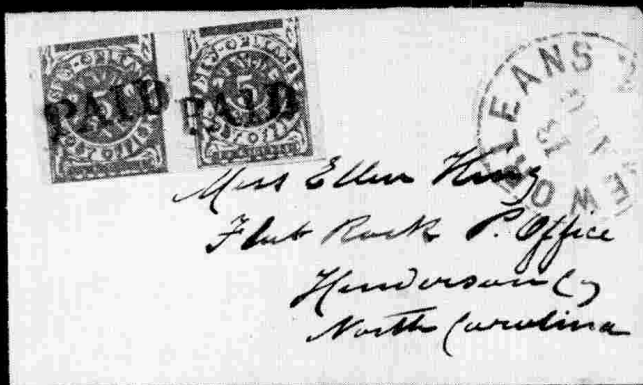 PAID PAID
5 5
NEW ORLEANS
13
Miss Ellen King
Flat Rock P. Office
Henderson Cy
North Carolina